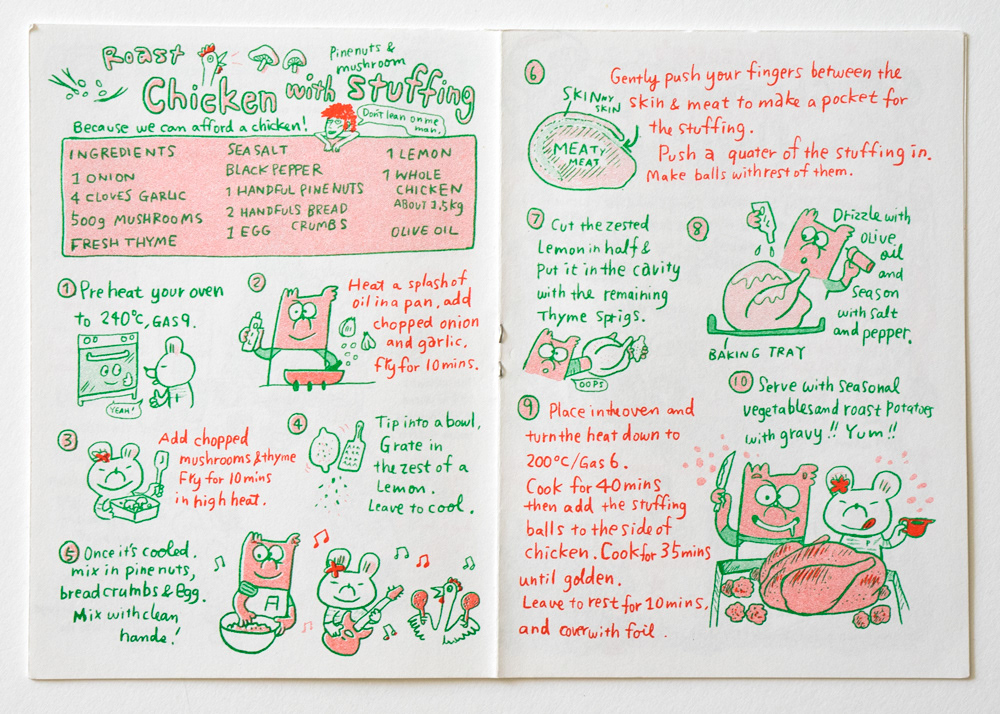 Roast
Pinenuts &
mushroom
Chicken with stuffing
Because we can afford a chicken!
Don't lean on me
man.
INGREDIENTS
1 ONION
4 CLOVES GARLIC
500g MUSHROOMS
FRESH THYME
SEA SALT
BLACK PEPPER
1 HANDFUL PINENUTS
2 HANDFULS BREAD
CRUMBS
1 EGG
1 LEMON
1 WHOLE
CHICKEN
ABOUT 1,5kg
OLIVE OIL
1 Preheat your oven
to 240°C, GAS 9.
YEAH!
2 Heat a splash of
oil in a pan, add
chopped onion
and garlic.
Fry for 10 mins.
3 Add chopped
mushrooms & thyme
Fry for 10 mins
in high heat.
4 Tip into a bowl,
Grate in
the zest of a
Lemon.
Leave to cool.
5 Once it's cooled.
mix in pine nuts,
bread crumbs & Egg.
Mix with clean
hande!
A
6 Gently push your fingers between the
skin & meat to make a pocket for
the stuffing.
Push a quater of the stuffing in.
Make balls with rest of them.
SKINNY
SKIN
MEATY
MEAT
7 Cut the zested
Lemon in half &
Put it in the cavity
with the remaining
Thyme Sprigs.
OOPS
8 Drizzle with
OLIVE
oil
and
Season
with salt
and pepper.
BAKING TRAY
9 Place in the oven and
turn the heat down to
200°C/Gas 6.
Cook for 40 mins
then add the stuffing
balls to the side of
chicken. Cook for 35 mins
until golden.
Leave to rest for 10 mins,
and cover with foil.
10 Serve with seasonal
vegetables and roast Potatoes
with gravy!! Yum!!